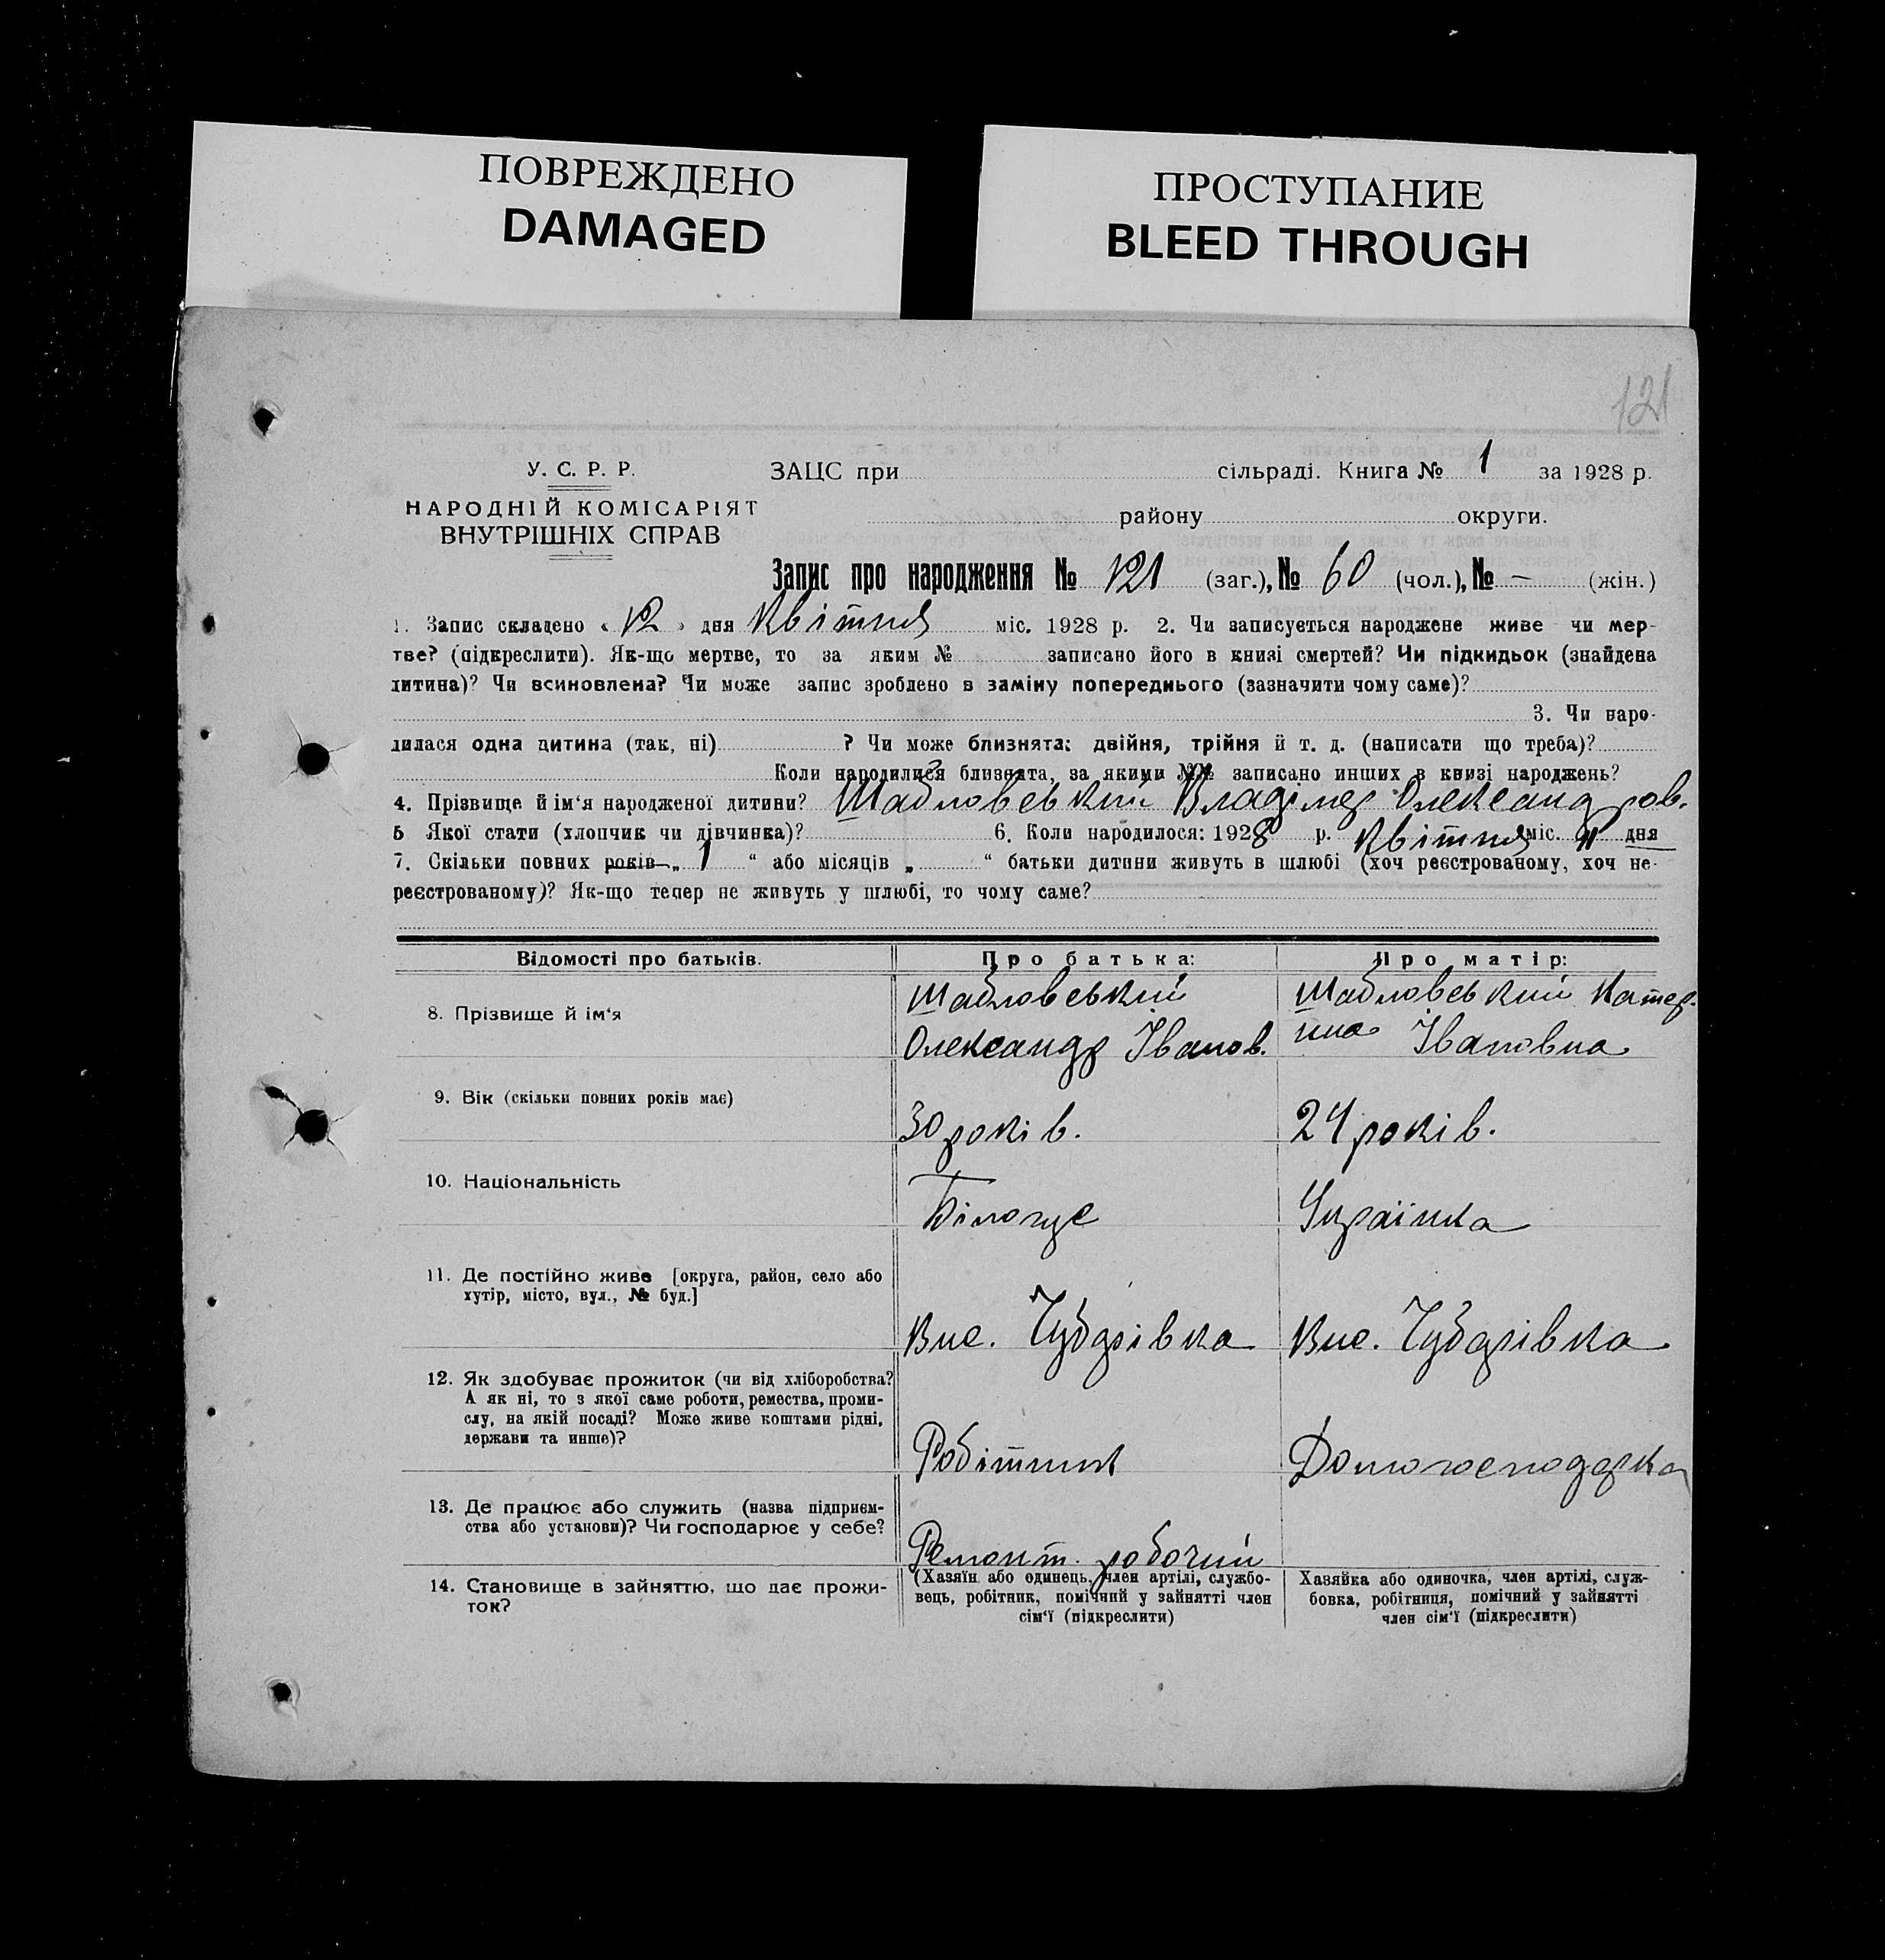 ПОВРЕЖДЕНО
DAMAGED
ПРОСТУПАНИЕ
BLEED THROUGH
121
У. С. Р. Р.
НАРОДНІЙ КОМІСАРІЯТ
ВНУТРІШНІХ СПРАВ
ЗАЦС при сільраді. Книга № 1 за 1928 р.
району округи.
Запис про народження № 121 (заг.), № 60 (чол.), № – (жін.)
1. Запис складено « 12 » дня Квітня міс. 1928 р. 2. Чи записується народжене живе чи мер-
тве? (підкреслити). Як-що мертве, то за яким № записано його в книзі смертей? Чи підкидьок (знайдена
дитина)? Чи всиновлена? Чи може запис зроблено в заміну попереднього (зазначити чому саме)?
3. Чи наро-
дилася одна дитина (так, ні) ? Чи може близнята: двійня, трійня й т. д. (написати що треба)?
Коли народилися близнята, за якими №№ записано инших в книзі народжень?
4. Прізвище й ім'я народженої дитини? Шабловський Владімер Олександров.
5 Якої стати (хлопчик чи дівчинка)? 6. Коли народилося: 1928 р. Квітня міс. дня
7. Скільки повних років „ 1 “ або місяців „ “ батьки дитини живуть в шлюбі (хоч реєстрованому, хоч не-
реєстрованому)? Як-що тепер не живуть у шлюбі, то чому саме?
Відомості про батьків. Про батька: Про матір:
8. Прізвище й ім'я
Шабловський
Олександр Іванов.
Шабловський Катер-
ина Івановна
9. Вік (скільки повних років має) 30 років. 24 років.
10. Національність Українка
11. Де постійно живе [округа, район, село або
хутір, місто, вул., № буд.]
Вис. Чубарівка Вис. Чубарівка
12. Як здобуває прожиток (чи від хліборобства?
А як ні, то з якої саме роботи, ремества, проми-
слу, на якій посаді? Може живе коштами рідні,
держави та инше)?
Робітник Домогосподарка
13. Де працює або служить (назва підприєм-
ства або установи)? Чи господарює у себе?
Ремонт. робочий
14. Становище в зайняттю, що дає прожи-
ток?
(Хазяїн або одинець, член артілі, службо-
вець, робітник, помічний у зайнятті член
сім'ї (підкреслити)
Хазяйка або одиночка, член артілі, служ-
бовка, робітниця, помічний у зайнятті
член сім'ї (підкреслити)